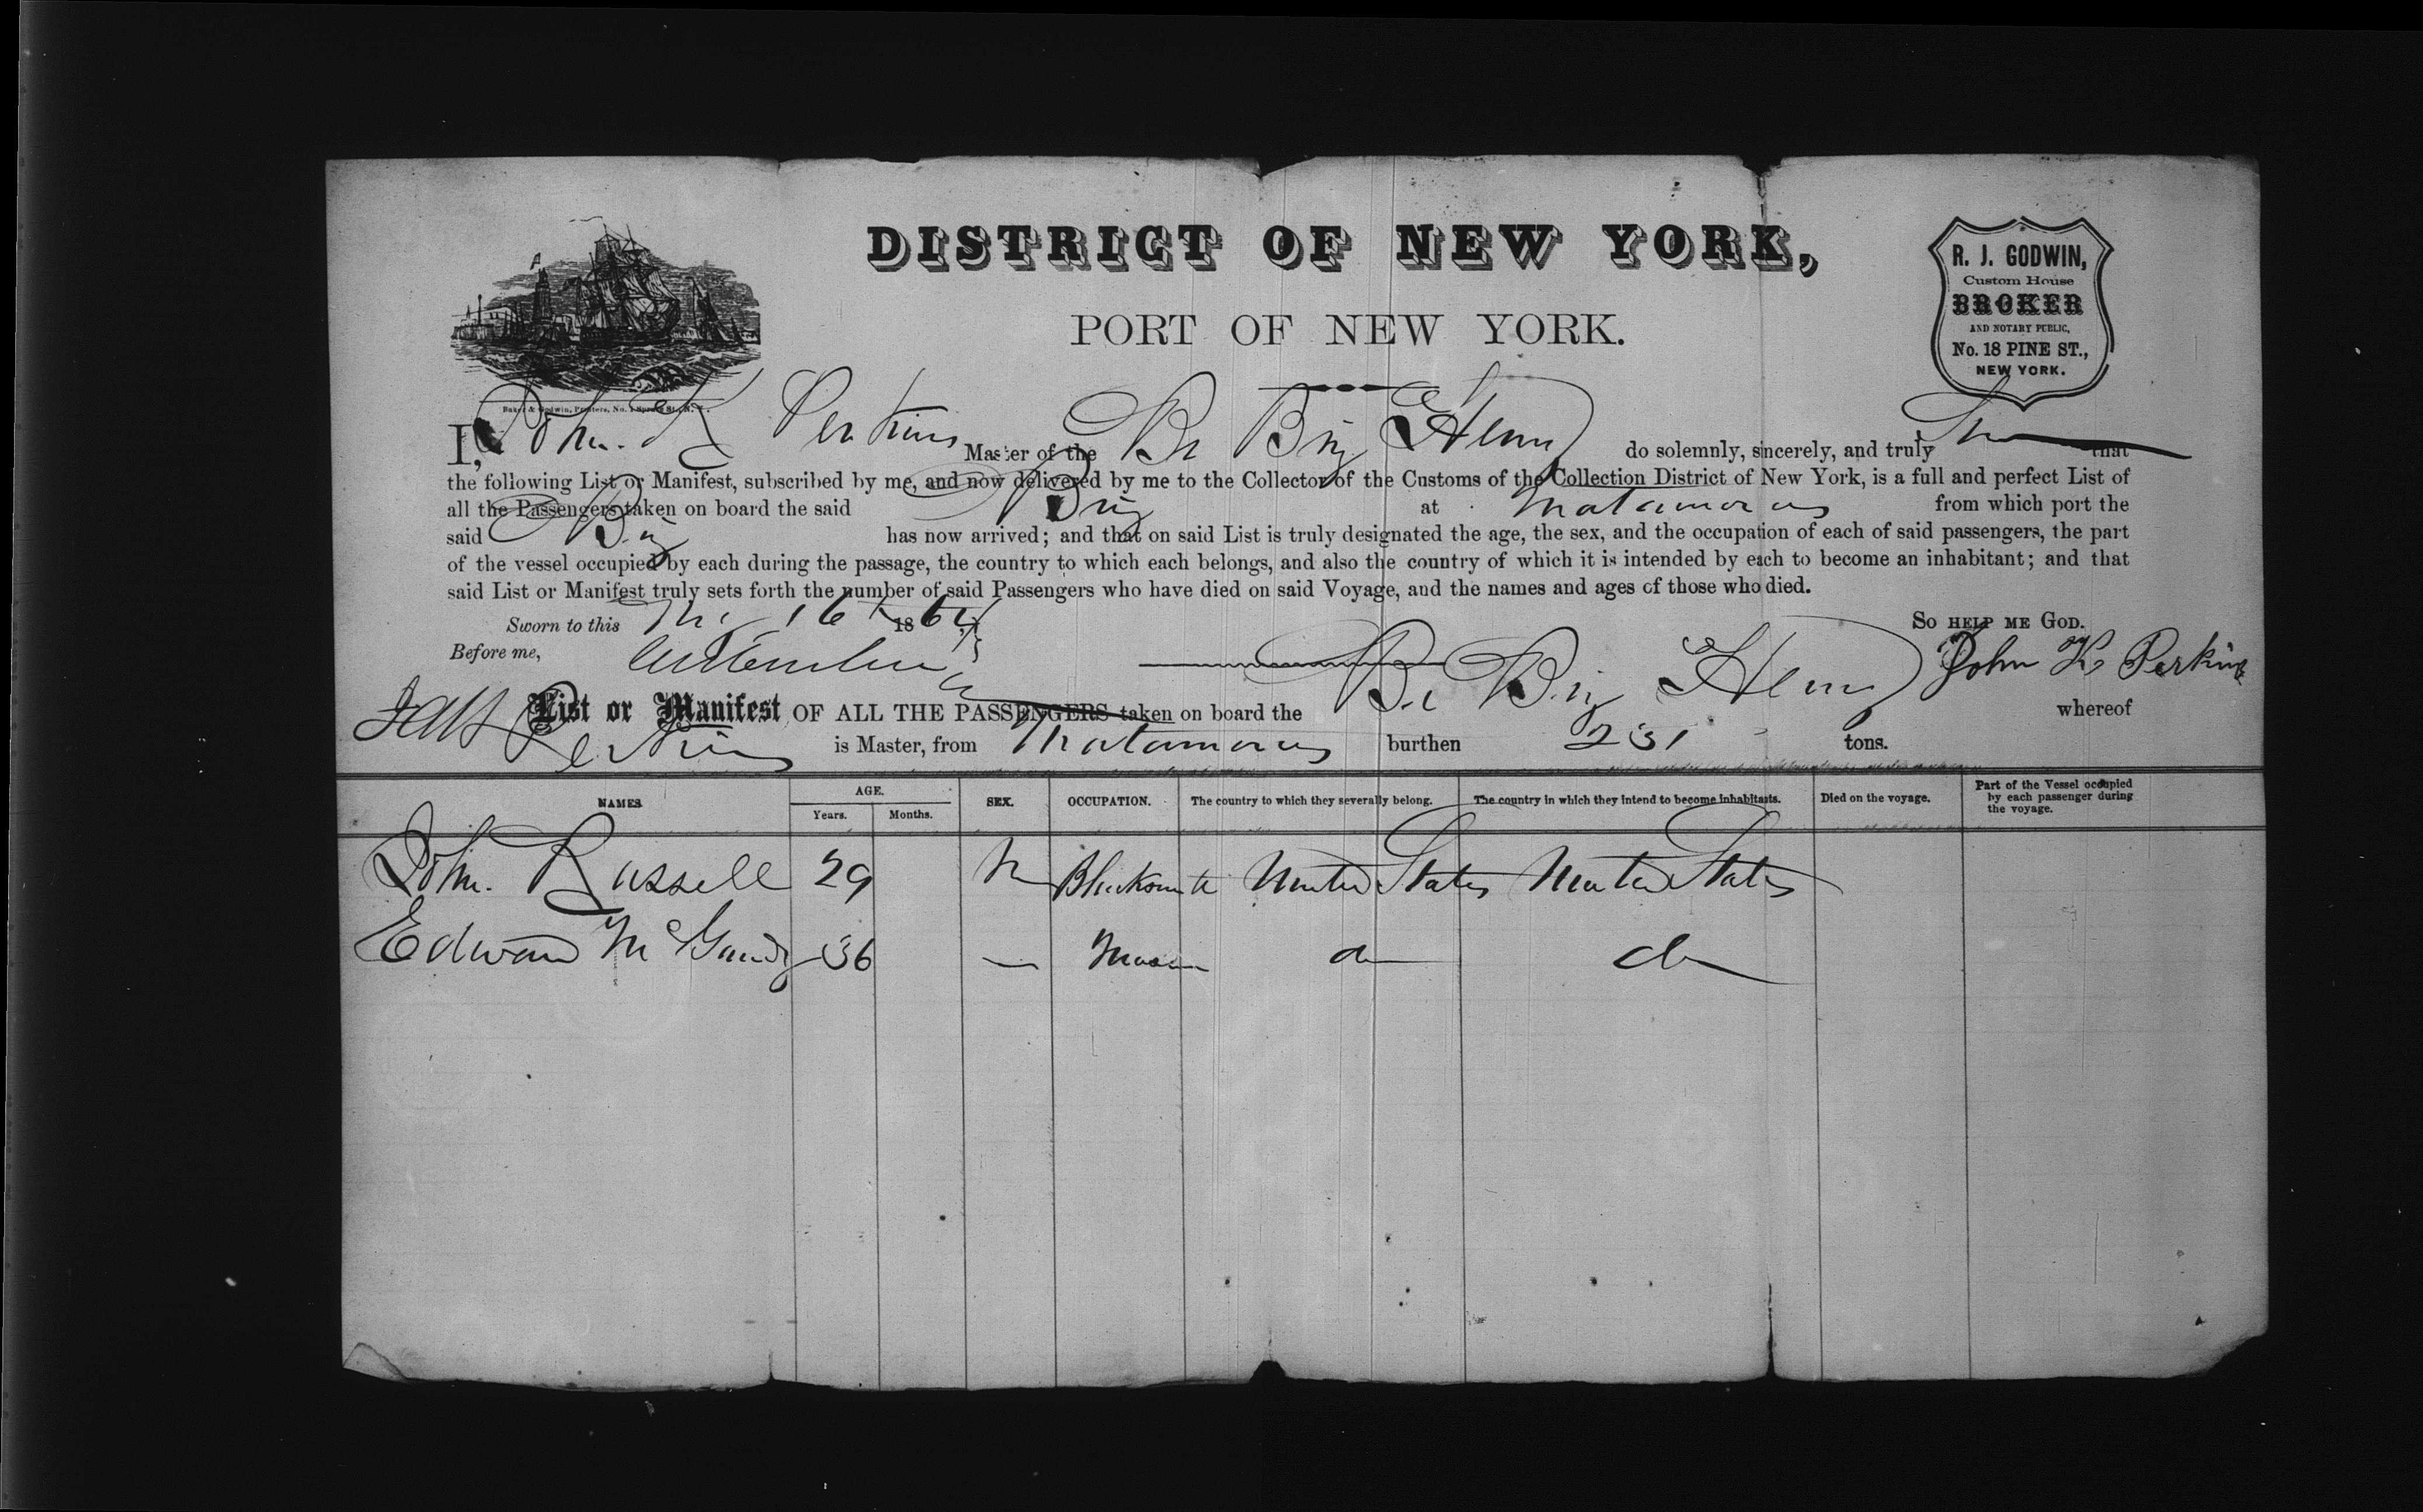 DISTRICT OF NEW YORK,
PORT OF NEW YORK.
R. J. GODWIN,
Custom House
BROKER
AND NOTARY PUBLIC,
No. 18 PINE ST.,
NEW YORK.
Baker & Godwin, Printers, No. 1 Spruce St., N. Y.
I, John K Perkins Master of the Br Brig Henry do solemnly, sincerely, and truly that
the following List or Manifest, subscribed by me, and now delivered by me to the Collector of the Customs of the Collection District of New York, is a full and perfect List of
all the Passengers taken on board the said Brig at Matamoras from which port the
said Brig has now arrived; and that on said List is truly designated the age, the sex, and the occupation of each of said passengers, the part
of the vessel occupied by each during the passage, the country to which each belongs, and also the country of which it is intended by each to become an inhabitant; and that
said List or Manifest truly sets forth the number of said Passengers who have died on said Voyage, and the names and ages of those who died.
Sworn to this 16 1864 So HELP ME GOD.
Before me, John K. Perkins
List or Manifest OF ALL THE PASSENGERS taken on board the Br Brig Henry whereof
Perkins is Master, from Matamoras burthen 231 tons.
NAMES AGE. Years. Months. SEX. OCCUPATION. The country to which they severally belong. The country in which they intend to become inhabitants. Died on the voyage. Part of the Vessel occupied by each passenger during the voyage.
John Russell 29 M Blacksmith United States United States
Edward Mc 36 — Mason do do